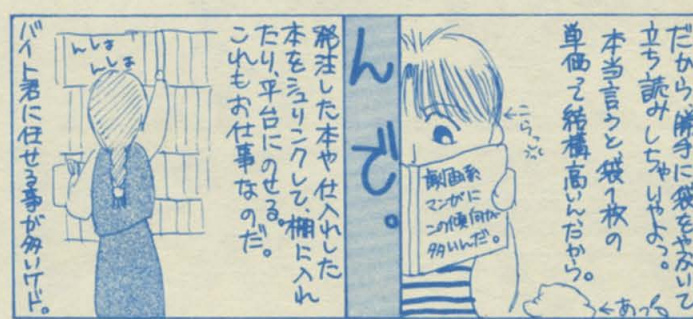 だから、勝手に袋をやぶいて
立ち読みしちゃいやよっ。
本当言うと袋1枚の
単価って結構高いんだから。
←こらっ
劇画系
マンガに
この傾向が
多いんだ。
←あっち
んで。
んしょ
んしょ
発注した本や仕入れした
本をシュリンクして、棚に入れ
たり、平台にのせる。
これもお仕事なのだ。
バイト君に任せる事が多いけど。